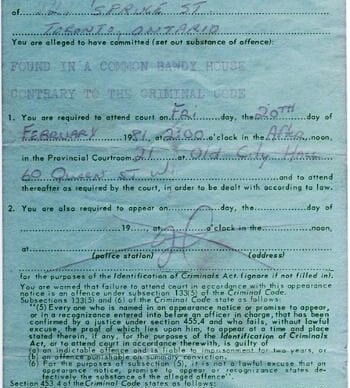 of SPRING ST
TORONTO, ONTARIO
You are alleged to have committed (set out substance of offence):
FOUND IN A COMMON BAWDY HOUSE
CONTRARY TO THE CRIMINAL CODE
1. You are required to attend court on Fri. day, the 20TH day of
FEBRUARY 1981, at 2:00 o'clock in the After noon,
in the Provincial Courtroom 21 at Old City Hall
60 QUEEN ST W. and to attend
thereafter as required by the court, in order to be dealt with according to law.
2. You are also required to appear on day, the day of
19 , at o'clock in the noon,
at
(police station) (address)
for the purposes of the Identification of Criminals Act. (ignore if not filled in).
You are warned that failure to attend court in accordance with this appearance
notice is an offence under subsection 133(5) of the Criminal Code.
Subsections 133(5) and (6) of the Criminal Code state as follows:
"(5) Every one who is named in an appearance notice or promise to appear,
or in a recognizance entered into before an officer in charge, that has been
confirmed by a justice under section 455.4 and who fails, without lawful
excuse, the proof of which lies upon him, to appear at a time and place
stated therein, if any, for the purposes of the Identification of Criminals
Act, or to attend court in accordance therewith, is guilty of
(a) an indictable offence and is liable to imprisonment for two years, or
an offence punishable on summary conviction.
(6) For the purposes of subsection (5), it is not a lawful excuse that an
appearance notice, promise to appear or recognizance states de-
fectively the substance of the alleged offence.
Section 453.4 of the Criminal Code states as follows: